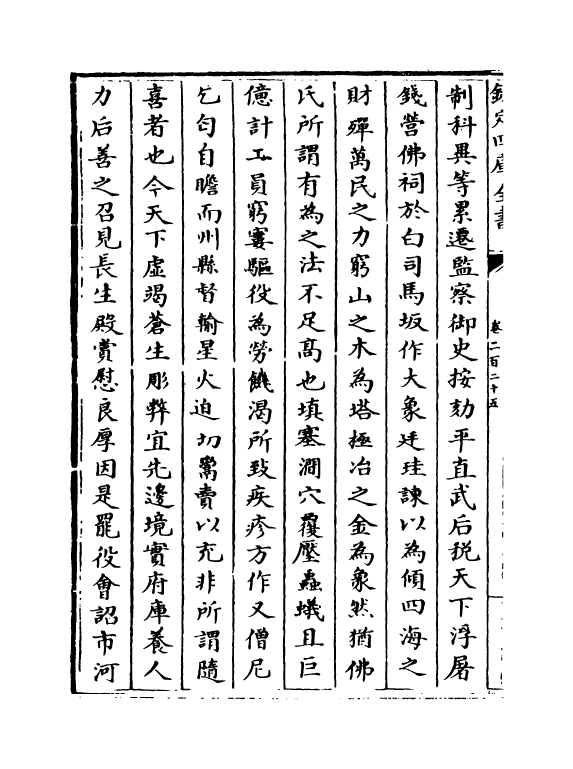 欽定四庫全書
卷二百二十五
制科異等累遷監察御史按劾平直武后税天下浮屠
錢營佛祠於白司馬坂作大象廷珪諫以為傾四海之
財殫萬民之力窮山之木為塔極冶之金為象然猶佛
氏所謂有為之法不足髙也填塞澗穴覆壓蟲蟻且巨
億計工員窮窶驅役為勞饑渴所致疾疹方作又僧尼
乞匄自贍而州縣督輸星火迫切鬻賣以充非所謂隨
喜者也今天下虛竭蒼生彫弊宜先邊境實府庫養人
力后善之召見長生殿賞慰良厚因是罷役會詔市河